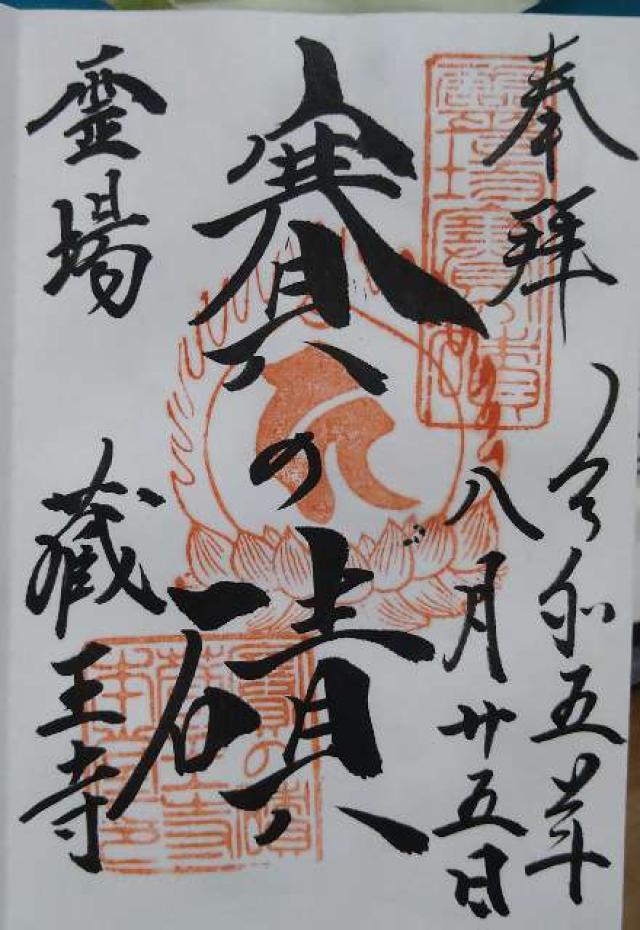 奉拝
令和五年
八月廿五日
賽の磧
霊場
蔵王寺